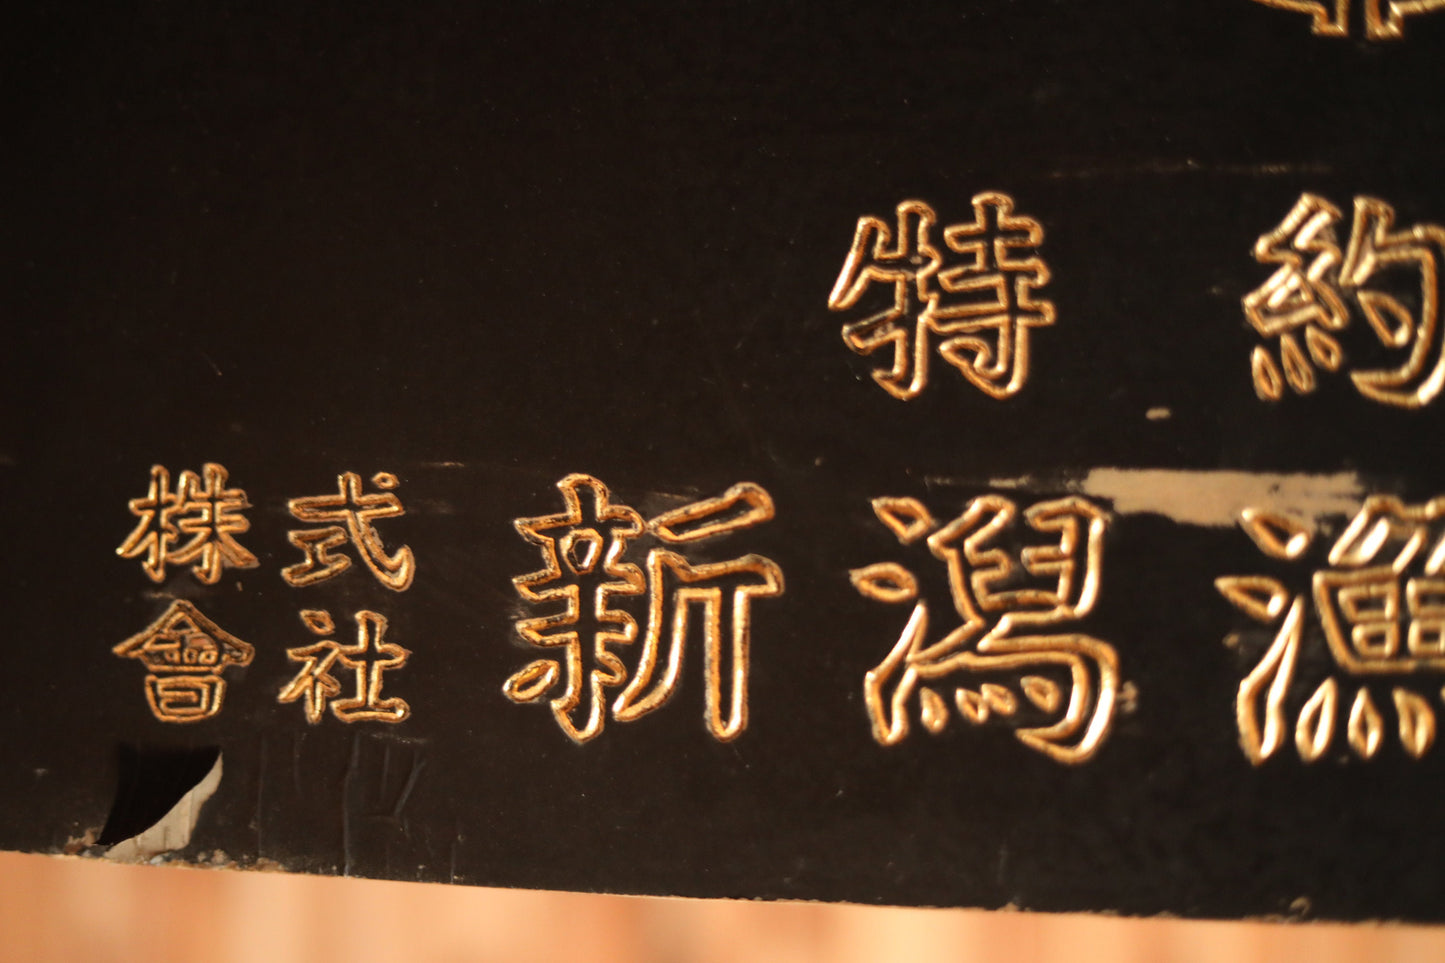 特約
株式會社新潟漁